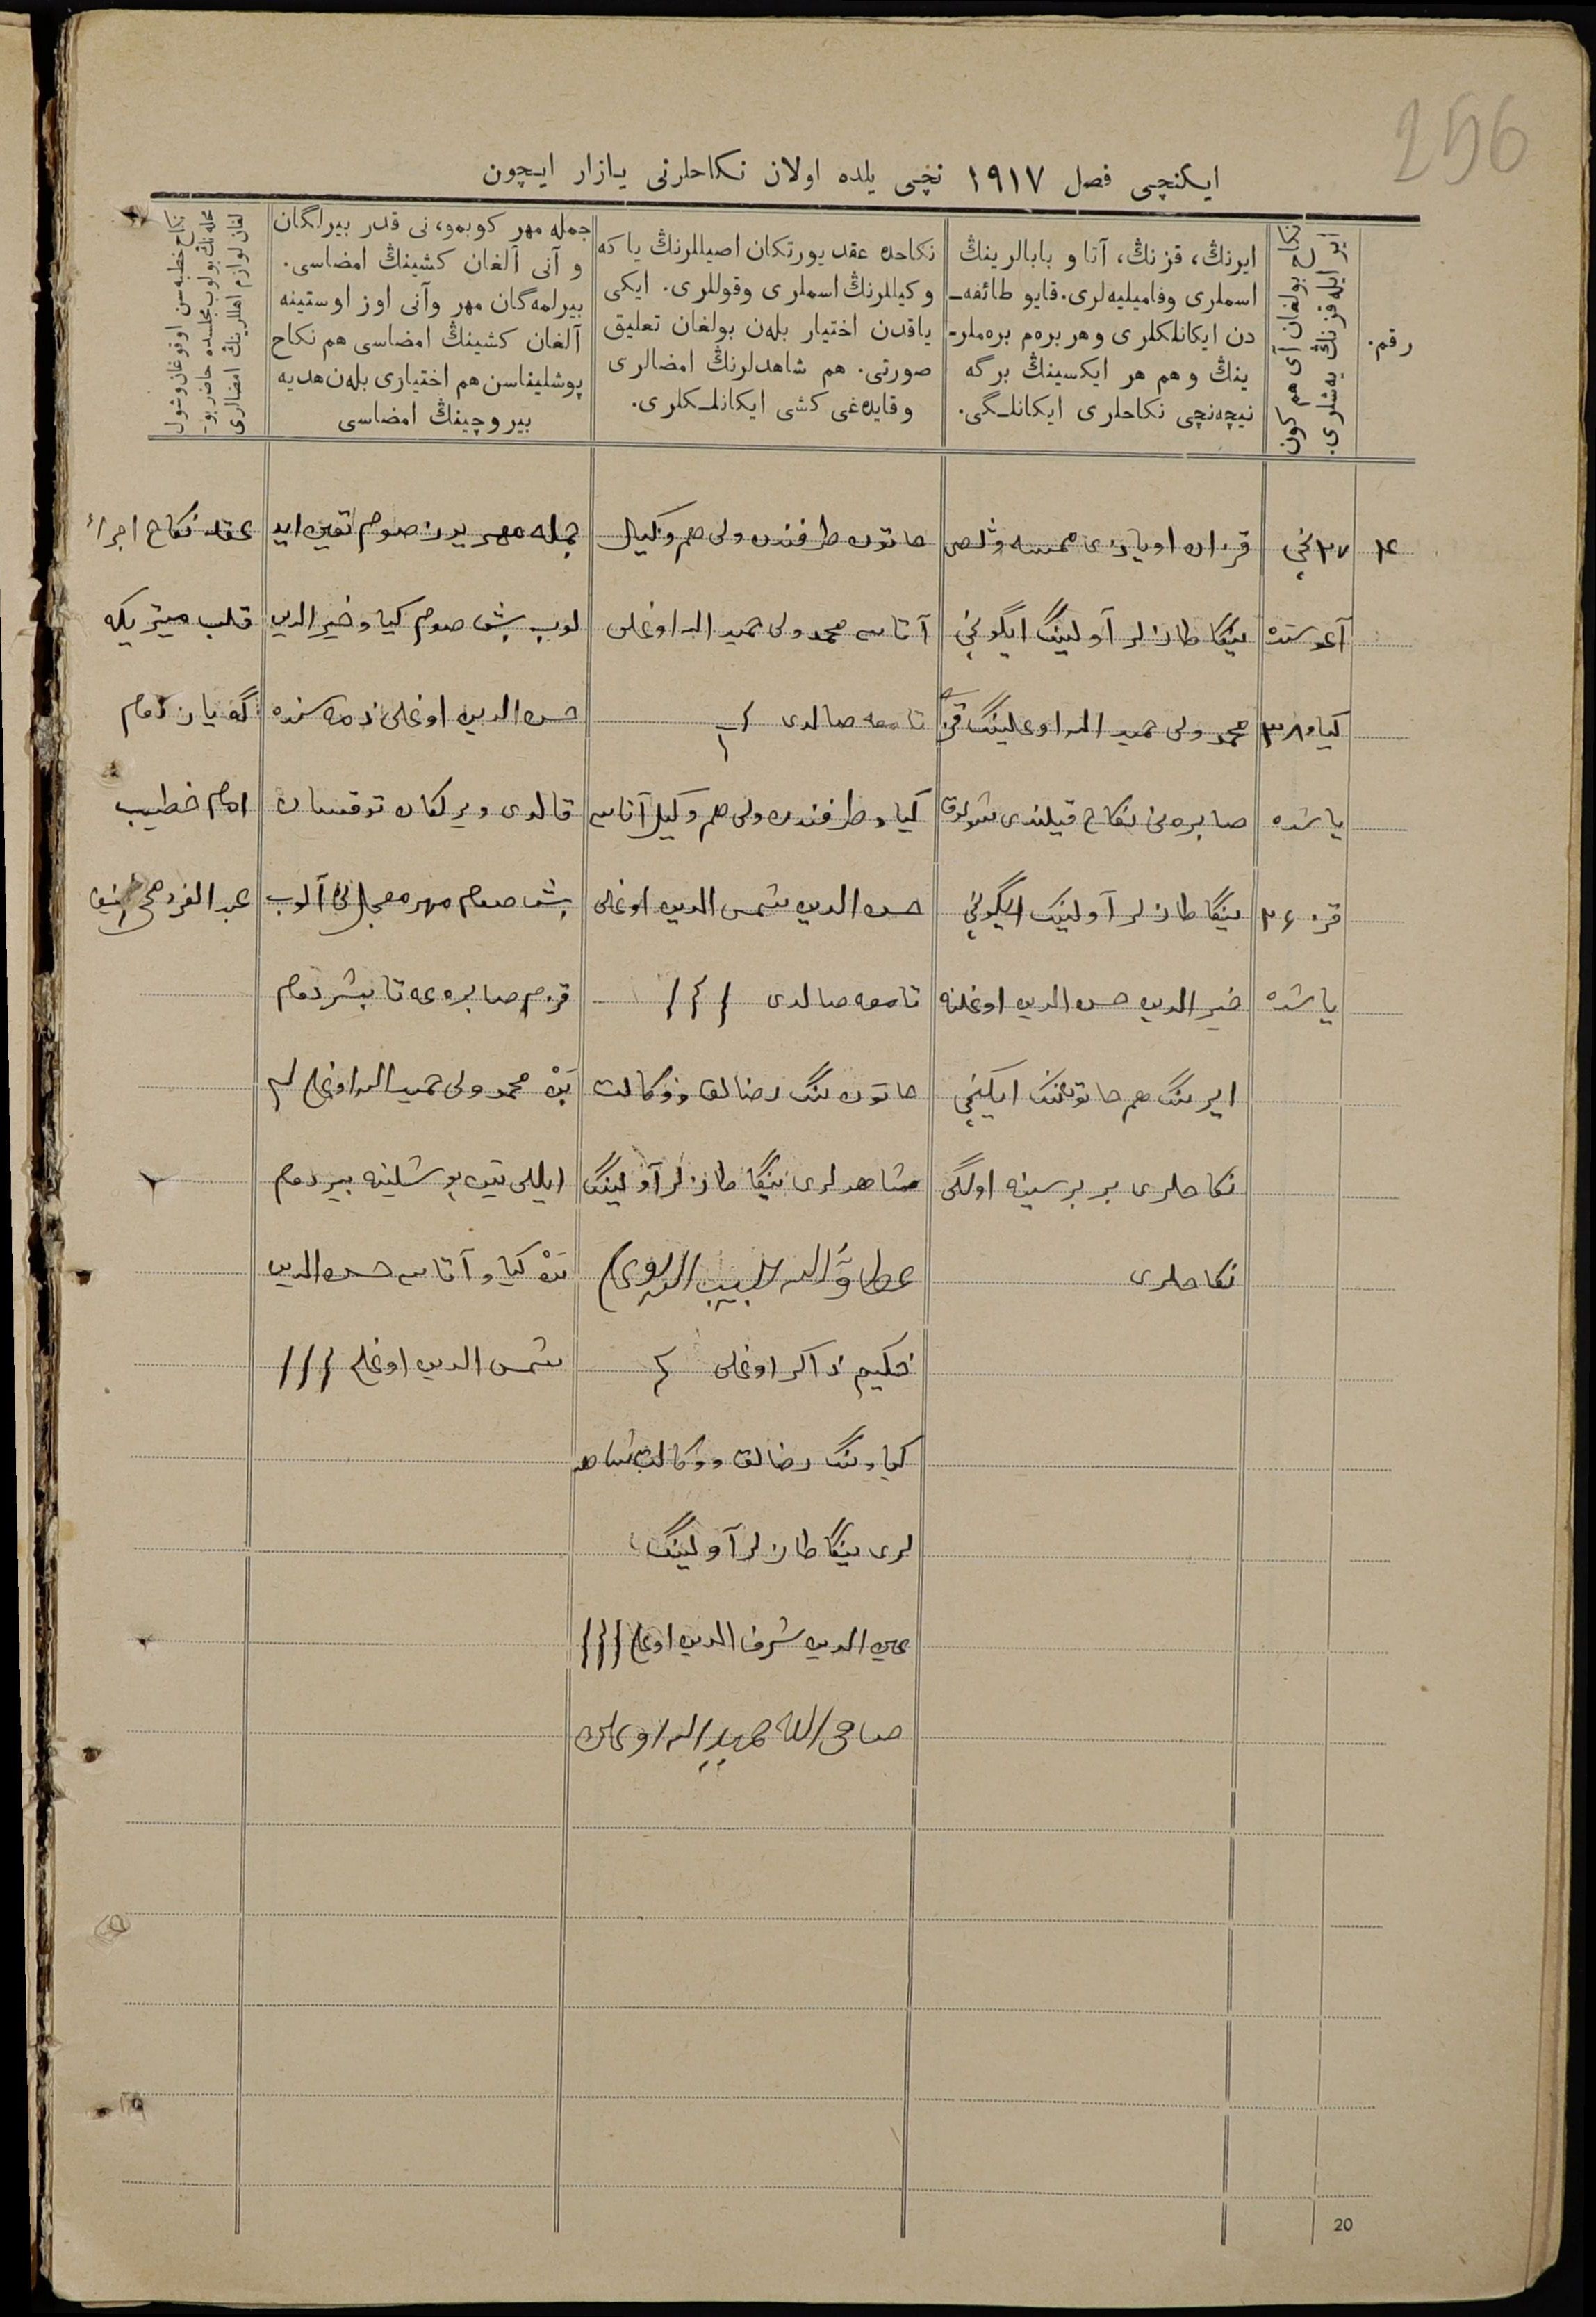 256
ایکنچی فصل ۱۹۱۷ نچی یلده اولان نکاحلرنی یازار ایچون
رقم.
نکاح بولغان آی هم کون
ایر ایله قزنڭ یەشلری.
ایرنڭ، قزنڭ، آتا و بابالرینڭ
اسملری وفامیلیەلری. قایو طائفه‌ـ
دن ایکانلکلری وهر برەم برەملرـ
ینڭ وهم هر ایکسینڭ برگه
نیچەنچی نکاحلری ایکانلـگی.
نکاحده عقد یورتکان اصیللرنڭ یا که
وکیللرنڭ اسملری وقوللری. ایکی
یاقدن اختیار بلەن بولغان تعلیق
صورتی. هم شاهدلرنڭ امضالری
وقایدەغی کشی ایکانلـکلری.
جمله مهر کوبمو، نی قدر بیرلگان
و آنی آلغان کشینڭ امضاسی.
بیرلمەگان مهر وآنی اوز اوستینه
آلغان کشینڭ امضاسی هم نکاح
پوشلیناسن هم اختیاری بلەن هدیه
بیروچینڭ امضاسی
نکاح خطبەسن اوقوغان وشول
محله‌نڭ بولوب مجلسده حاضر بو‌ـ
لغان لوازم اهللرینڭ امضالری
۴
۲۷ نچی
آغوستده
کیاو ۳۸
یاشده
قز ۲۶
یاشده
قزان اویازی
ینگا طازلر آولینگ ایگونچی
محمدولی حمید الله اوغلینگ قزی
صابره‌نی نکاح قیلندی شولوق
ینگا طازلر آولینگ ایگونچی
خیر الدین حسن الدین اوغلنه
ایرننگ هم خاتوننگ ایکنچی
نکاحلری بر برسینه اولگی
نکاحلری
خاتون طرفندن ولی هم وکیل
آتاسی محمدولی حمید الله اوغلی
تامغه صالدی
کیاو طرفندن ولی هم وکیل آتاسی
حسن الدین شمس الدین اوغلی
تامغه صالدی
خاتون ننگ رضالق ووکالت
شاهدلری ینگا طازلر آولینگ
عطاءالله حبیب الله اوغلی
حکیم ذاکر اوغلی
کیاوننگ رضالق ووکالت شاهد
لری ینگا طازلر آولینگ
شرف الدین اوغلی
حمید الله اوغلی
جمله مهر یوز صوم تعین اید
لوب بش صوم کیاو خیر الدین
حسن الدین اوغلی ذمه‌سنده
قالدی ویرلکان توقسان
بش صوم مهر معجل نی آلوب
قزم صابره‌غه تابشردم
محمدولی حمید الله اوغلی
ایللی تین پوشلینه بیردم
کیاو آتاسی حسن الدین
شمس الدین اوغلی
عقد نکاح اجراء
قلب میتریکه
گه یازدم
امام خطیب
20